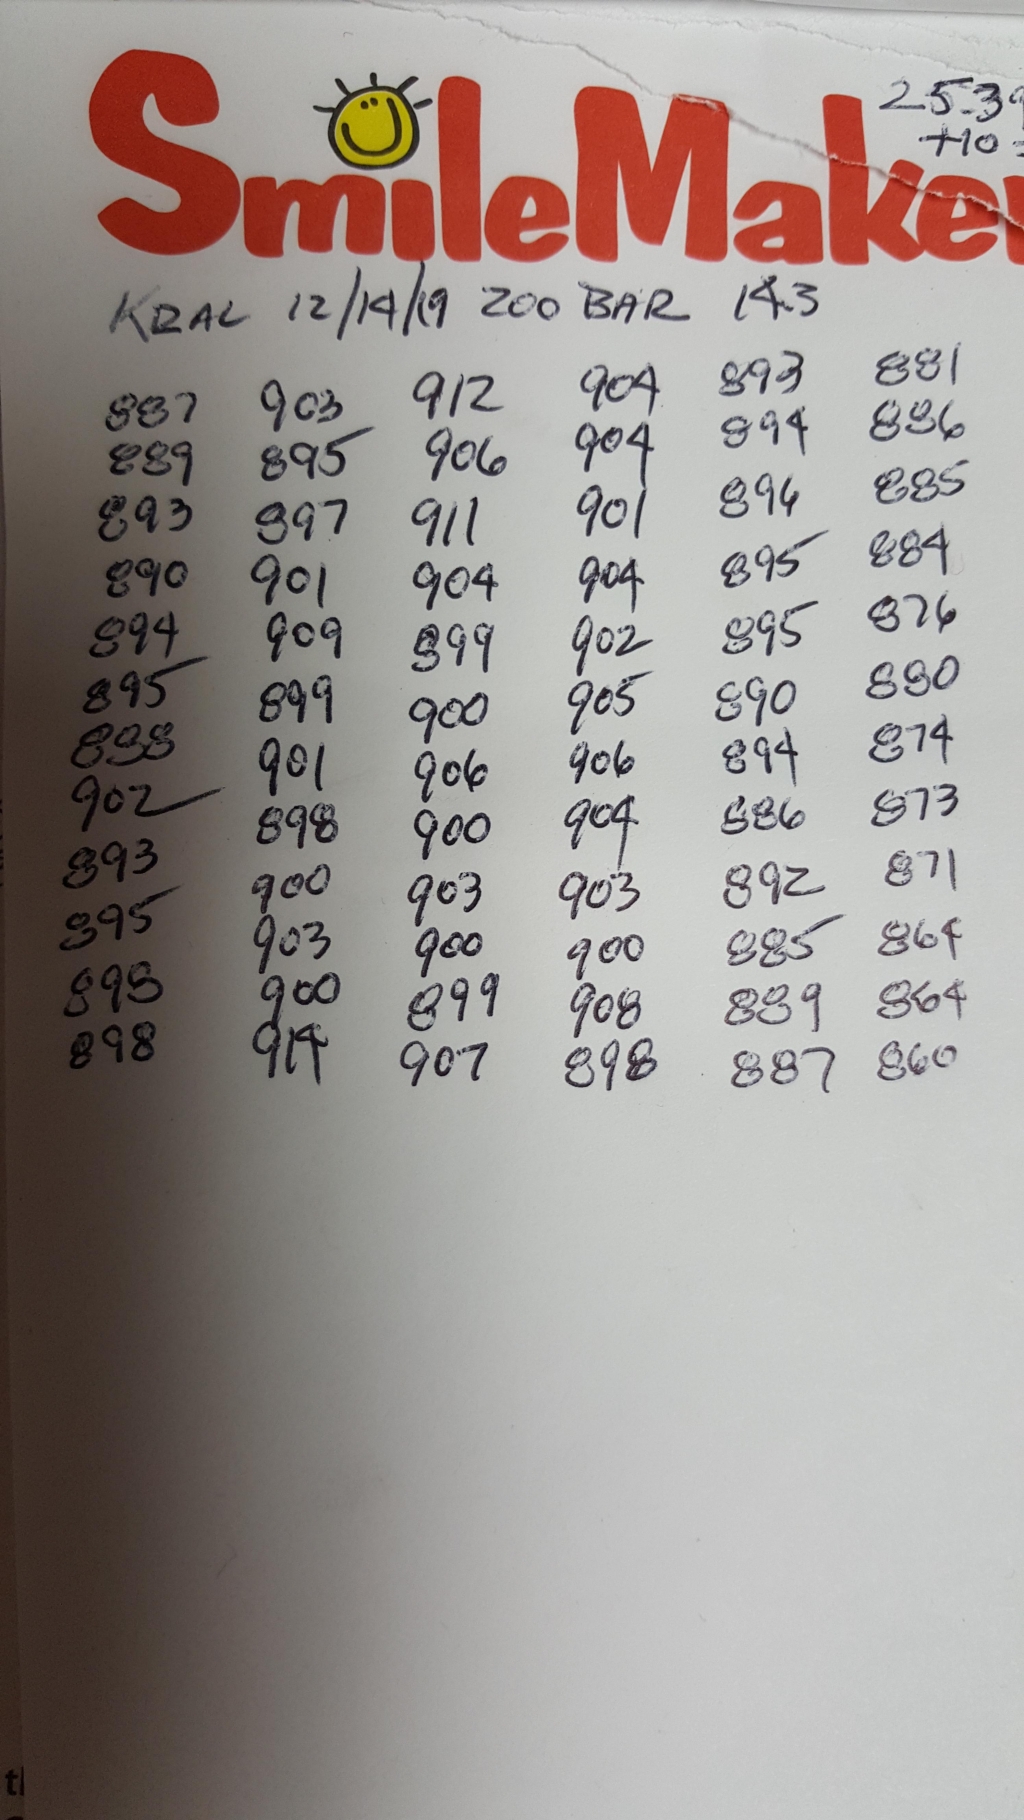 SmileMaker
25.39
+10
KRAL 12/14/19 200 BAR 14.3
887 903 912 904 893 881
889 895 906 904 894 886
893 897 911 901 896 885
890 901 904 904 895 884
894 909 899 902 895 876
895 899 900 905 890 880
888 901 906 906 894 874
902 898 900 904 886 873
893 900 903 903 892 871
895 903 900 900 885 864
898 900 899 908 889 864
898 914 907 898 887 860